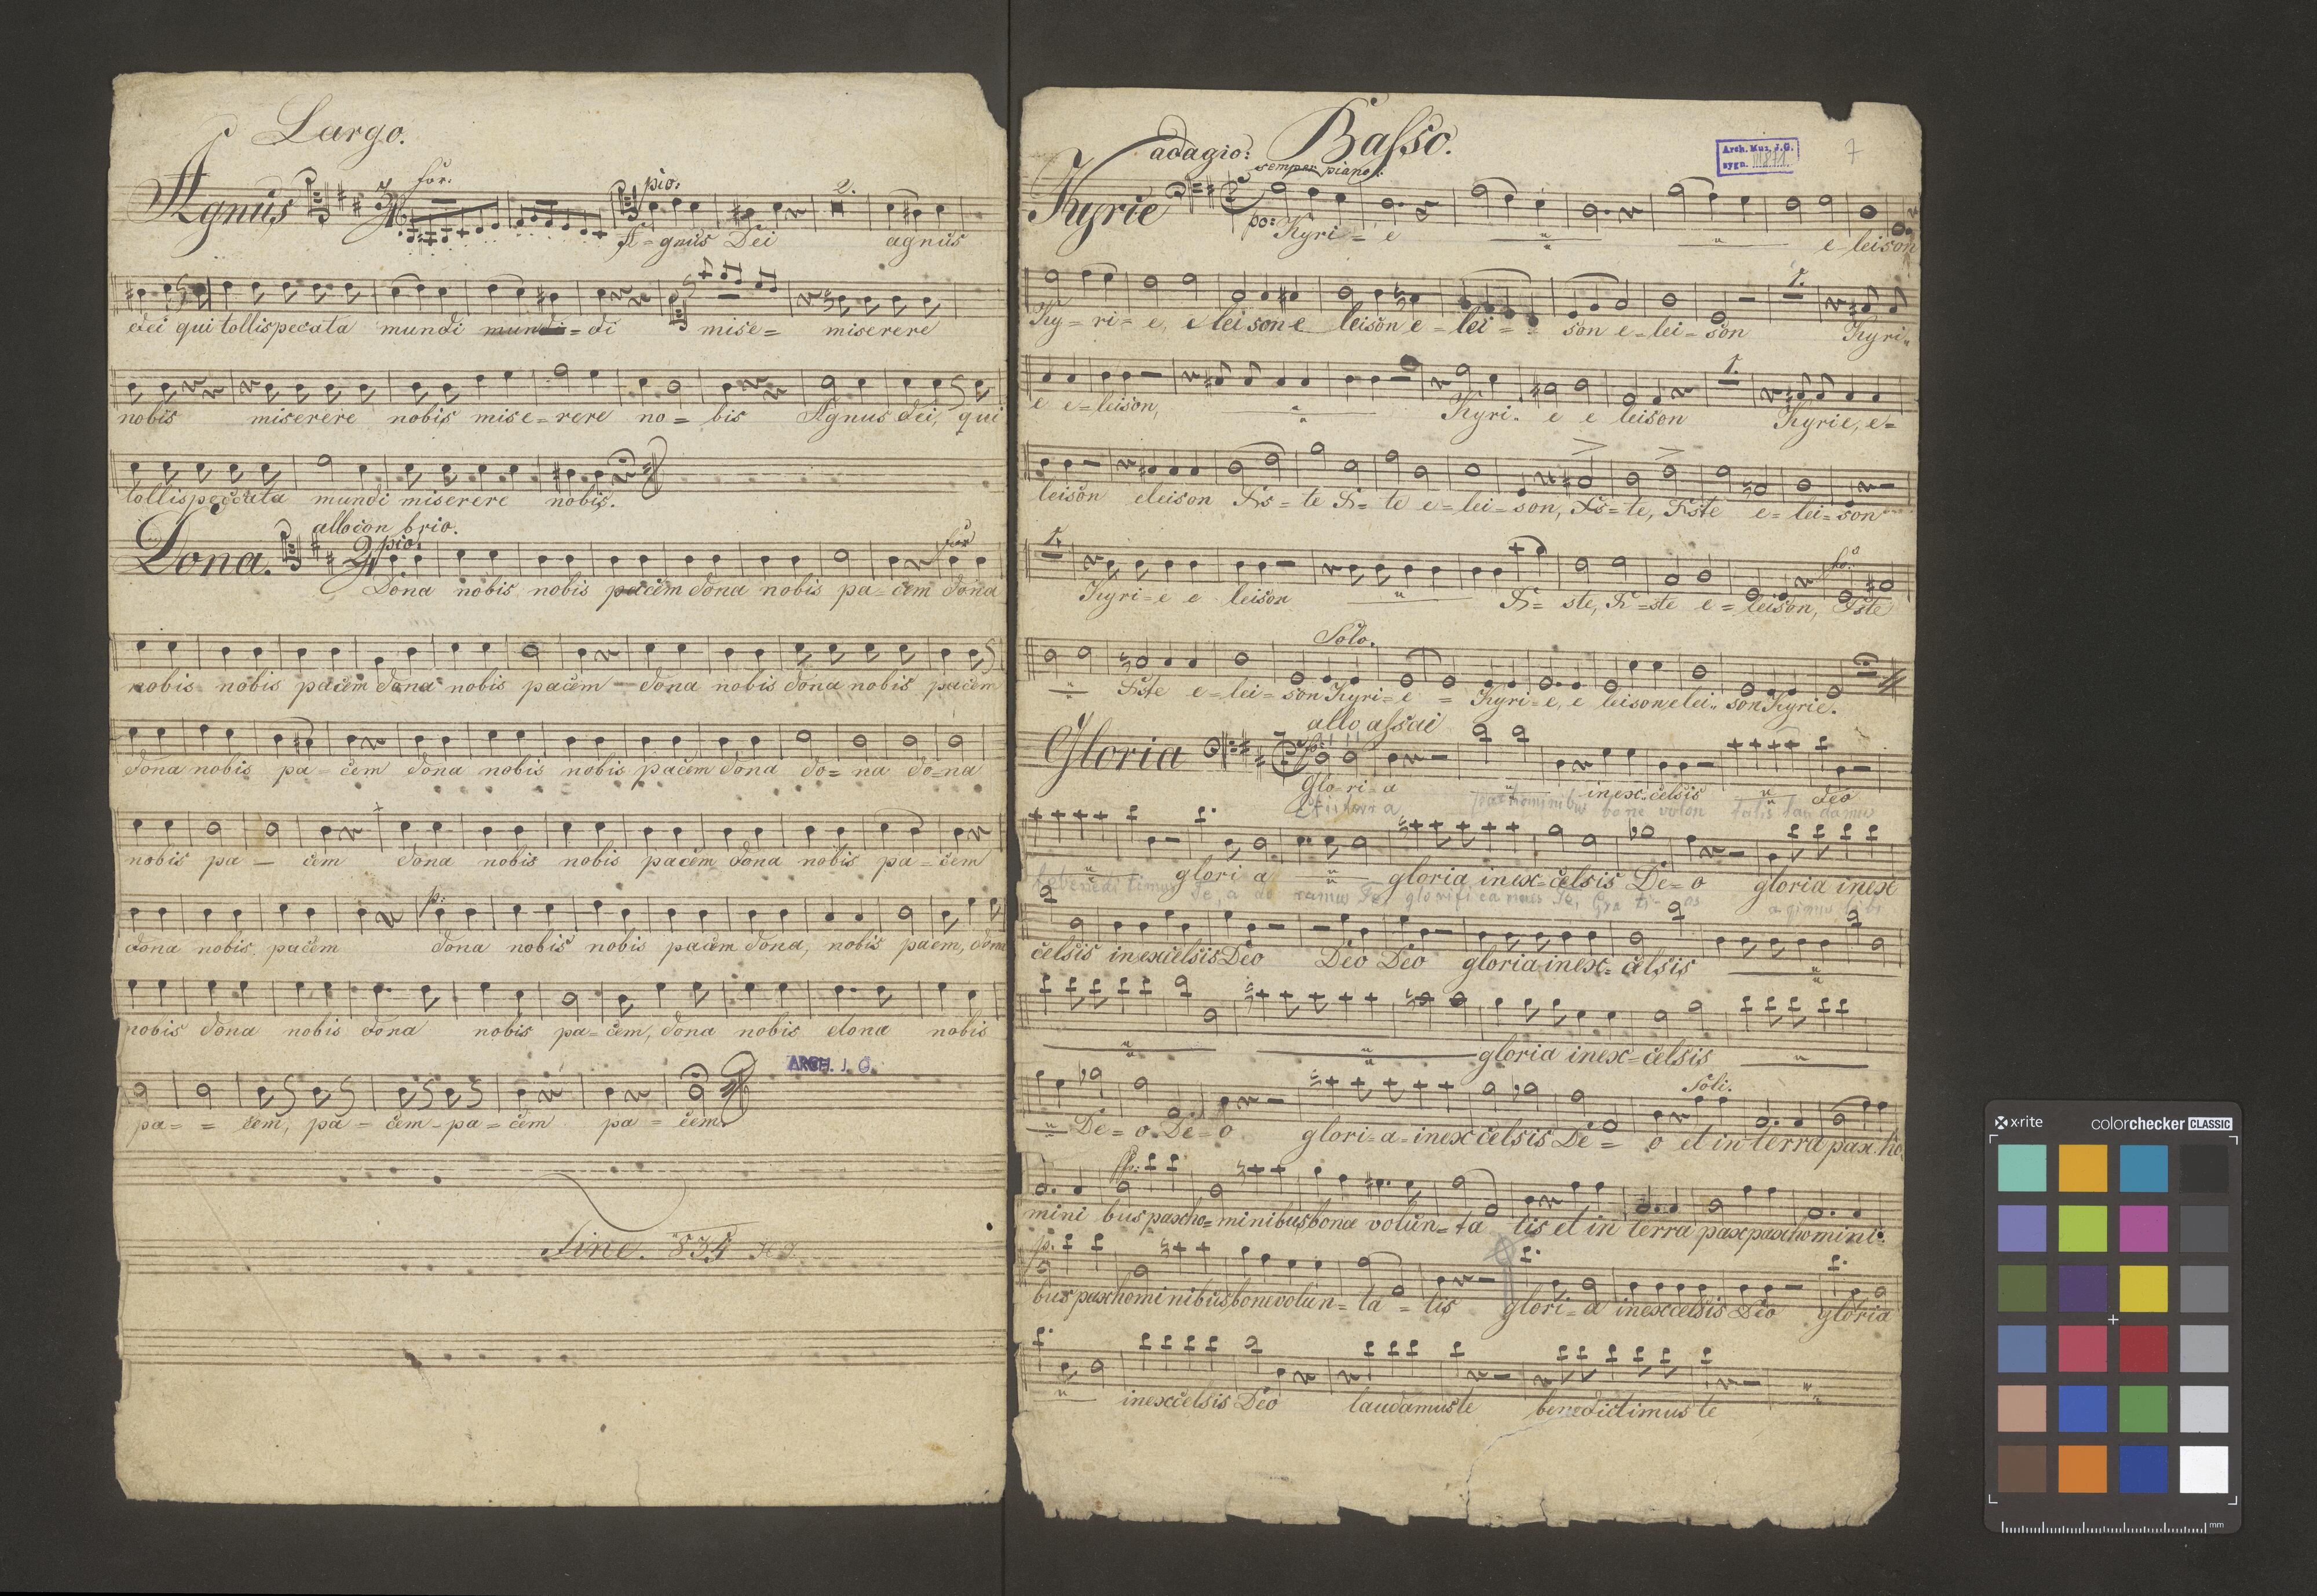 Largo.
Agnus
for.
pio:
2.
A=gnus Dei agnus
dei qui tollis pecata mundi mundi=di mise= miserere
nobis miserere nobis mise=rere no=bis Agnus dei, qui
tollis peccata mundi miserere nobis.
allo con brio.
Dona.
pio:
for
Dona nobis nobis pacem dona nobis pa=cem dona
nobis nobis pacem dona nobis pacem dona nobis dona nobis pacem
dona nobis pa=cem dona nobis nobis pacem dona do=na do=na
nobis pa=cem dona nobis nobis pacem dona nobis pa=cem
p:
dona nobis pacem dona nobis nobis pacem dona, nobis paem, dona
nobis dona nobis dona nobis pa=cem, dona nobis dona nobis
ARCH. J. G.
pa== cem, pa=cem-pa=cem pa=cem.
Fine. 834
Basso.
adagio:
semper piano.
Arch. Muz. J.G.
sygn. III 871
7
Kyrie
po:
Kyri=e e leison
Ky=ri=e, e leison e leison e=lei= son e=lei=son Kyri..
1.
e e=leison, Kyri. e e leison Kyrie, e=
1.
leison eleison X=ste X=te e=lei=son, Xs=te, Xste e=lei=son
1.
fo:
Kyri=e e leison X=ste, X=ste e=leison, Xste
Solo.
Xste e=lei=son Kyri=e = Kyri=e, e leison elei.. son Kyrie.
allo assai
Gloria
fo:
Glo-ri-a in ex.celsis deo
Et in terra pax hominibus bone volon tatis lau damus
glori a gloria in ex=celsis De=o gloria in ex
Te, a do ramus Te, glorifi camus Te, Gra ti as agimus tibi
celsis in excelsis Deo Deo Deo gloria in ex=celsis
gloria in ex=celsis
Soli.
De=o De=o glori=a=in ex celsis De=o et in terra pax ho
fp:
mini bus pax ho=minibus bona volun=ta tis et in terra pax pax homini:
fp:
bus pax homi nibus bone volun=ta=tis glori=a in excelsis Deo gloria
in excelsis Deo laudamus te benedictimus te
x-rite
colorchecker CLASSIC
mm